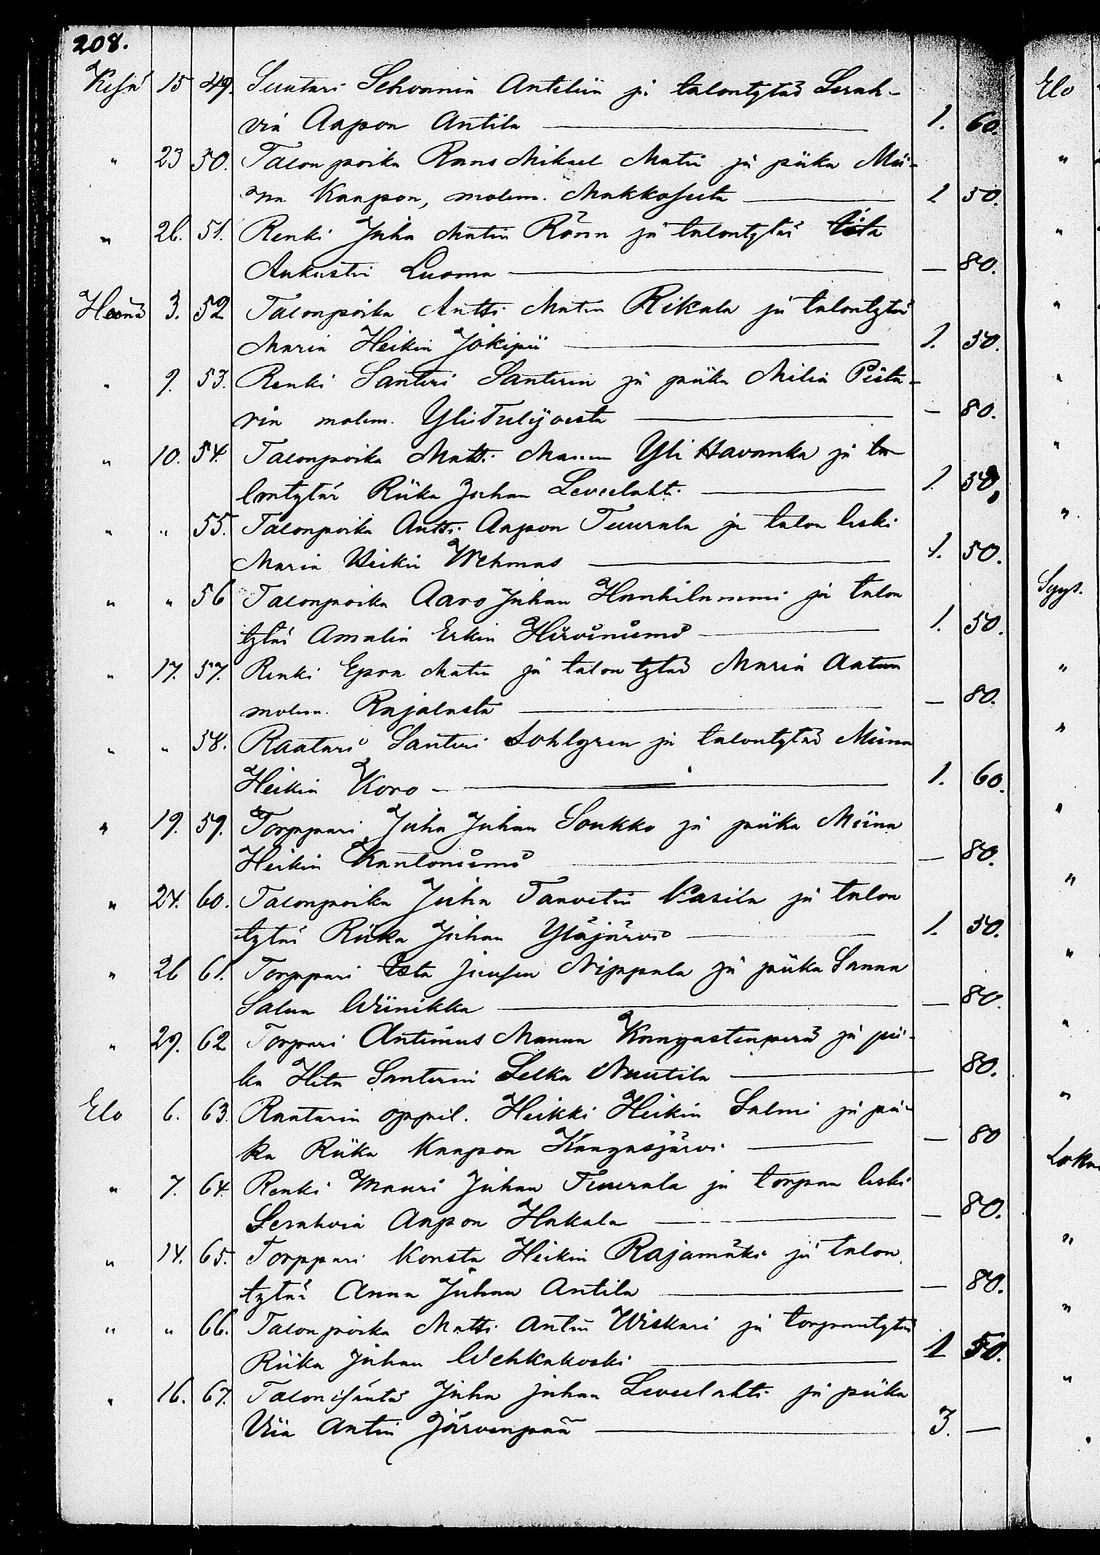 208.
Kesä 15 49. Suutari Sehvania Antiliin ja talontytär Serah-
via Aapon Antila 1. 60
" 23 50. Talonpoika Frans Mikael Matin ja piika Mii-
na Kaapon, molem. Makkoseeta 1 50.
" 26. 51. Renki Juha Matin Rönn ja talontytär
Aukusti Luoma — 80.
Heinä 3. 52 Talonpoika Antti Matin Rikala ja talontytär
Maria Heikin Jokipii 1. 50.
" 9. 53. Renki Santeri Santerin ja piika Milia Pieta-
rin molem. Yli Tulijoesta — 80.
" 10. 54. Talonpoika Matti Manun Yli Havanka ja ta-
lontytär Riika Juhan Leveelahti 1. 50.
" " 55. Talonpoika Antti Aapon Tuurala ja talon leski
Maria Heikin Wehmas 1. 50.
" " 56 Talonpoika Aaro Juhan Hankilammi ja talon
tytär Amalia Erkin Hirviniemi 1. 50.
" 17. 57. Renki Epra Matin ja talontytär Maria Aatun
molem. Rajalasta — 80.
" " 58. Raatari Santeri Sohlgren ja talontytär Miina
Heikin Koro 1. 60.
" 19. 59. Torppari Juha Juhan Soukko ja piika Miina
Heikin Kantoniemi — 80.
" 24. 60. Talonpoika Juha Taavetin Pasila ja talon
tytär Riika Juhan Yläjärvi 1. 50.
" 26 61. Torppari Esa Juusen Nippala ja piika Sanna
Salun Wiinikka — 80.
" 29. 62 Torpari Antinus Manun Kangastenperä ja pii-
ka Heta Santerin Selka Nuutila — 80.
Elo 6. 63. Raatarin oppil. Heikki Heikin Salmi ja pii-
ka Riika Kaapon Kangasjärvi — 80
" 7. 64. Renki Mauri Juhan Tuurala ja torpan leski
Serahvia Aapon Hakala — 80.
" 14. 65. Torppari Konsta Heikin Rajamäki ja talon
tytär Anna Juhan Antila — 80.
" " 66. Talonpoika Matti Antin Wiskari ja torpantytär
Riika Juhan Wehkakoski 1 50.
" 16. 67. Talonisäntä Juha Juhan Leveelahti ja piika
Viia Antin Järvenpää 3. —
Elo
"
"
"
"
"
"
Syys.
"
"
"
"
"
"
"
Loka
"
"
"